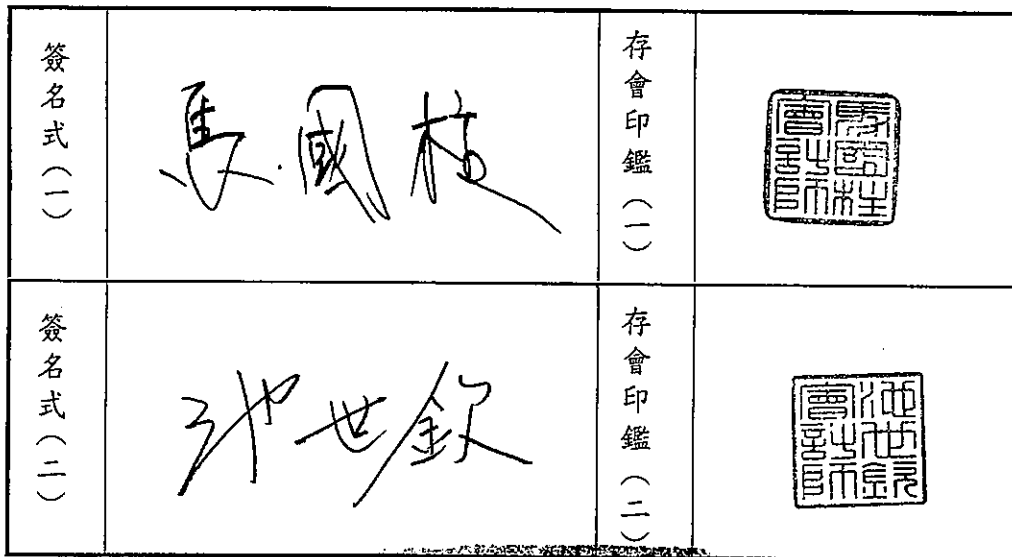 簽名式(一)
馬國柱
存會印鑑(一)
馬國柱
會計師
簽名式(二)
池世欽
存會印鑑(二)
池世欽
會計師